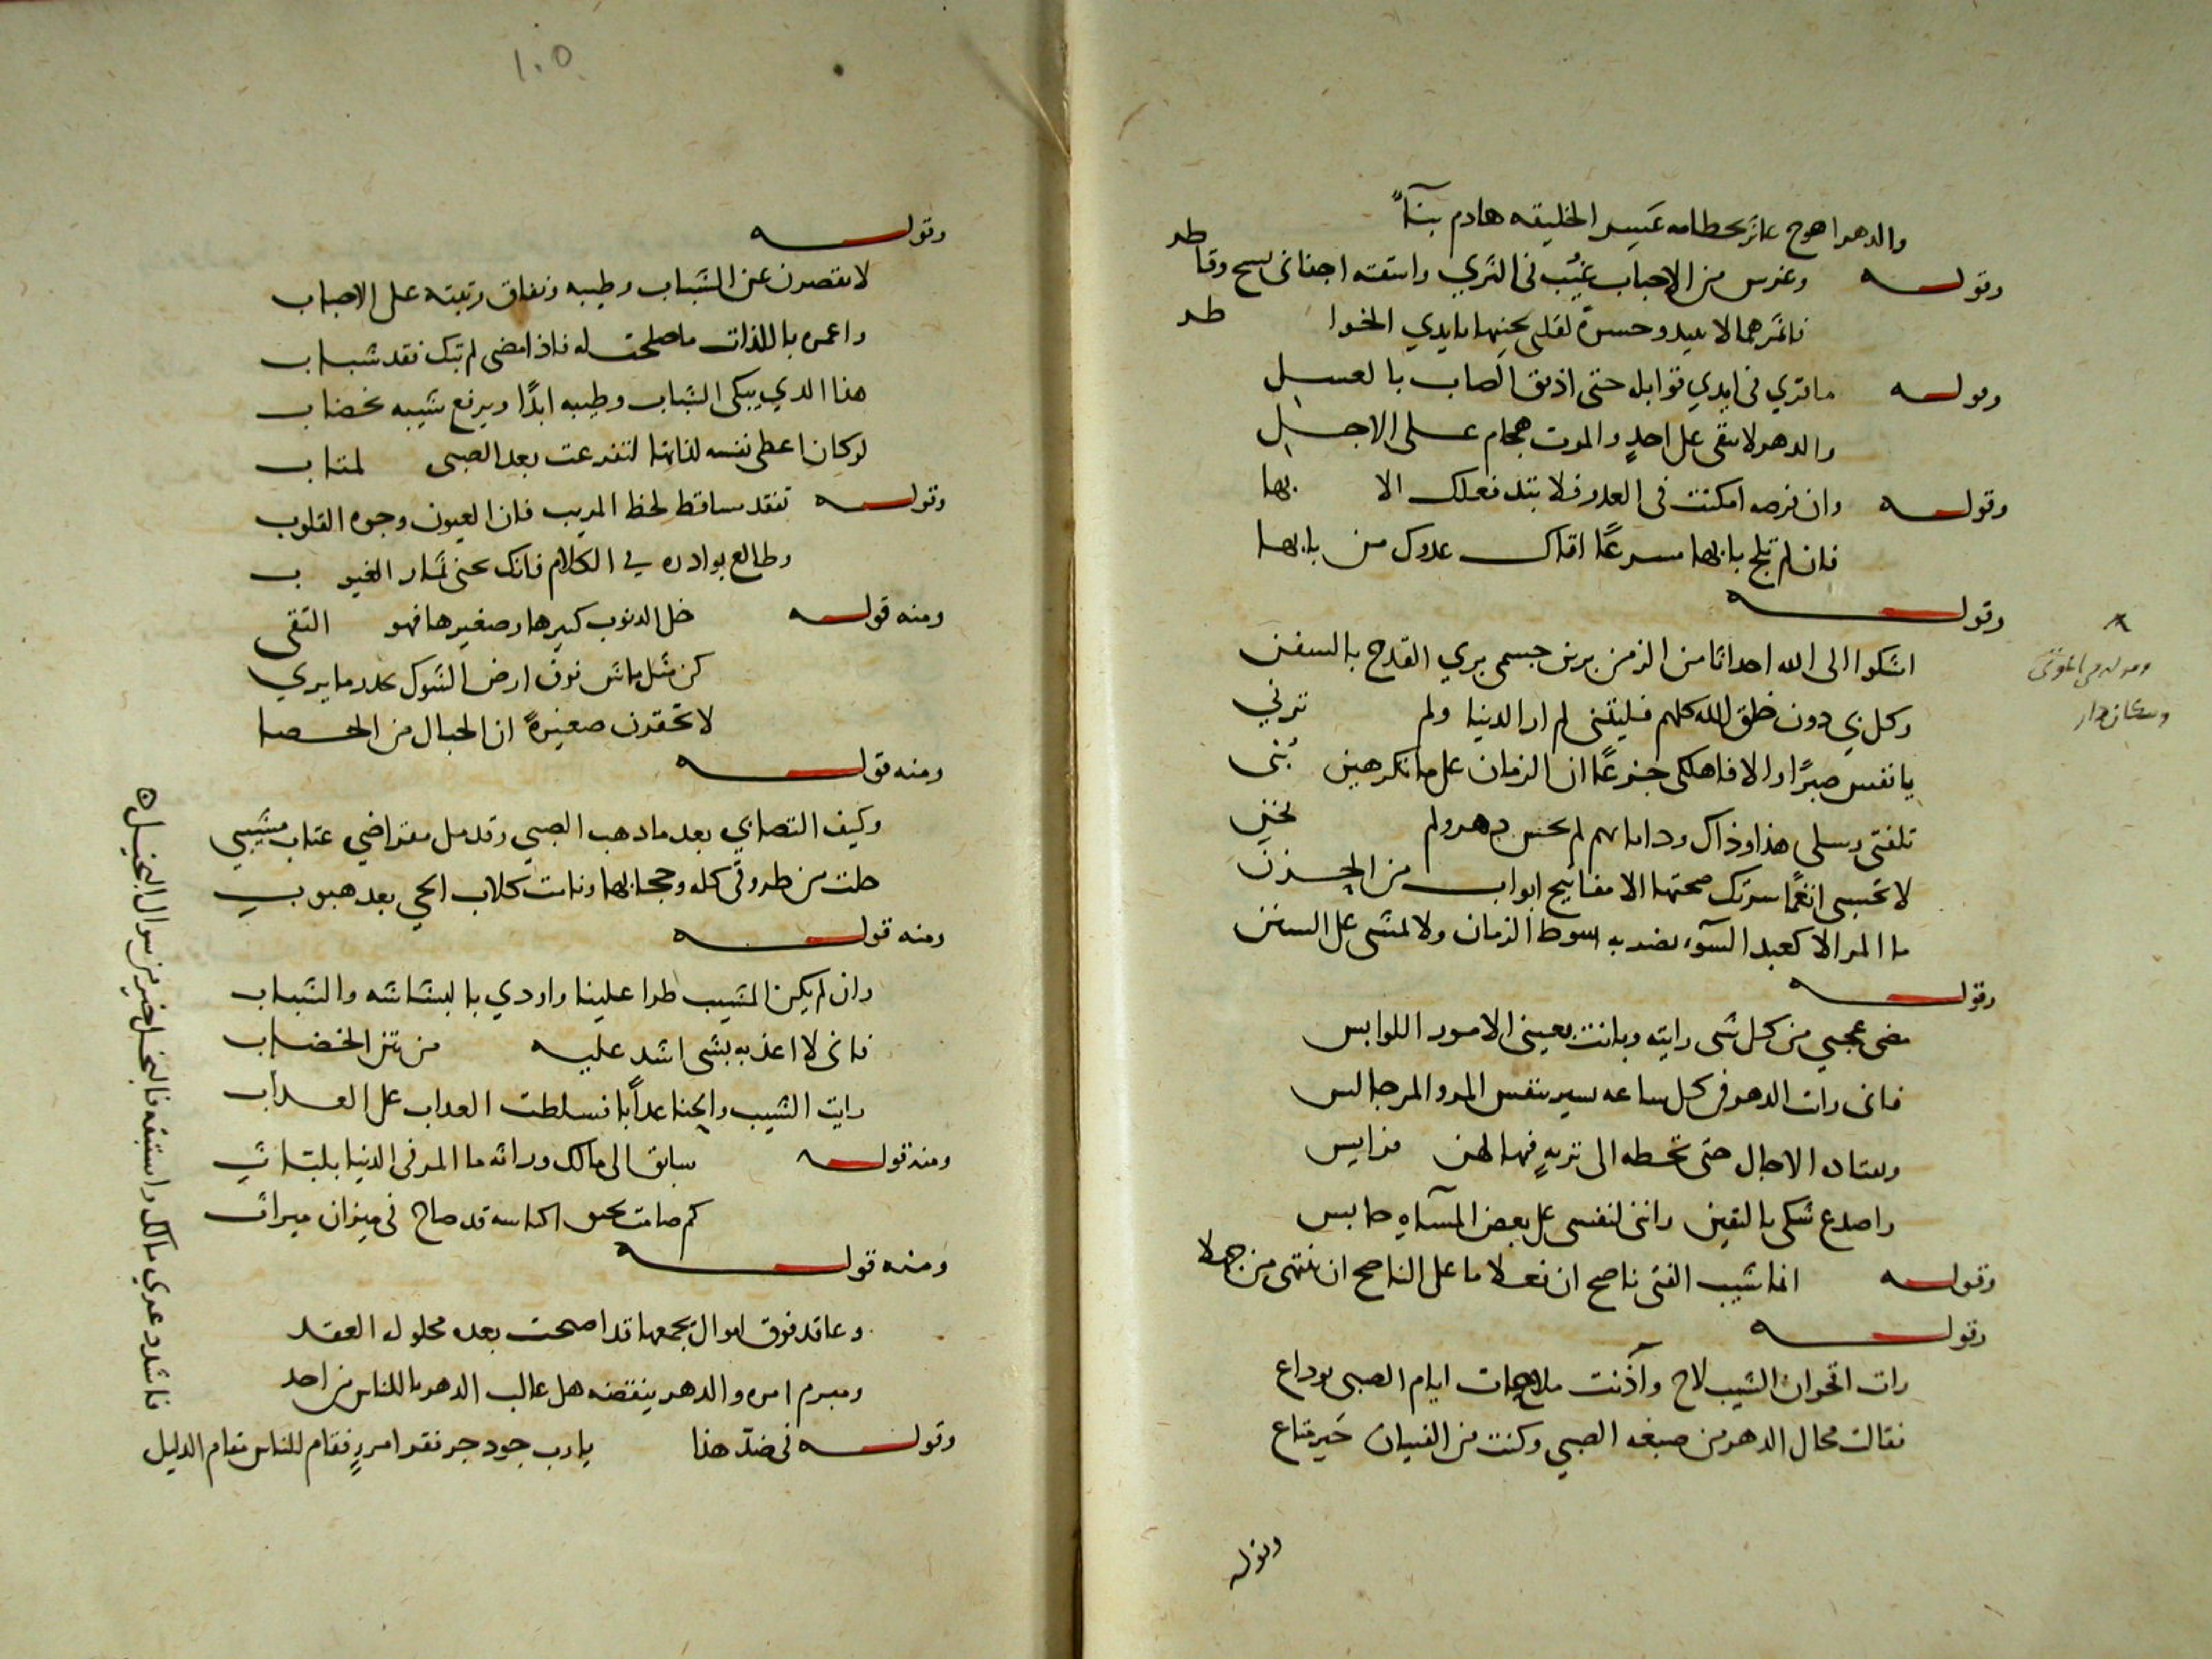 والدهر اهوج عاثر بحطامه عسر الخليقه هادم بنآءً
وقوله وغرس من الاحباب غيبت في الثرى واسقته اجفاني بسح وقاطر
فاثمر هما لا يبيد وحسرة لقلبي يجنيها بايدي الخواطر
وقوله ما تري في ايدي قوابله حتى اذيق الصاب بالعسل
والدهر لا يبقى على احدٍ والموت هجام على الاجل
وقوله وان فرصه امكنت في العدو فلا تبتد فعلك الا بها
فان لم تلج بابها مسرعًا اتاك عدوك من بابها
وقوله
اشكوا الى الله احداثا من الزمن برين جسمي بري القدح بالسفن
وكل ذي دون خلق الله كلهم فليتني لم ار الدنيا ولم ترني
يا نفس صبرًا والا فاهلكي جزعًا ان الزمان على ما تكرهين بني
لا تحسبي انعمًا سرتك صحبتها الا مفاتيح ابواب من الحزن
ما المر الا كعبد السوء يضربه سوط الزمان ولا يمشي على السنن
وقوله
مضى عجبي من كل شي رايته وبانت بعيني الامور اللوابس
فاني رات الدهر في كل ساعه يسير بنفس المر والمر جالس
ويعتاده الاجال حتى تحطه الى تربهٍ فيها لهن فرايس
واصدع شكي باليقين وانني لنفسي على بعض حابس
وقوله انما شيب الفتى ناصح ان فعلا ما على الناصح ان ينتهي من جهلا
وقوله
رات اقحوان الشيب لاح وآذنت ملاحات ايام الصبى بوداع
فقالت محال الدهر من صبغه الصبي وكنت من الفتيان خير متاع
وقوله
١٠٥
وقوله
لا تقصرن عن الشباب وطيبه على الاحباب
واعمره باللذات ما صلحت له فاذا مضى لم تبك فقد شباب
هذا الذي يبكي الشباب وطيبه ابدًا ويرفع شيبه بخضاب
لو كان اعطى نفسه لذاتها لتفرغت بعد الصبى لمتاب
وقوله تفقد مساقط لحظ المريب فان العيون وجوه القلوب
وطالع بوادره في الكلام فانك تجني ثمار الغيوب
ومنه قوله خل الذنوب كبيرها وصغيرها فهو التقى
كن مثل ماش فوق ارض الشوك يحذر ما يري
لا تحقرن صغيرةً ان الجبال من الحصا
ومنه قوله
وكيف التصابي بعد ما ذهب الصبي وقد مل مقراضي عتاب مشيبي
حلت من طروقي كله وحجابها ونامت كلاب الحي بعد هبوب
ومنه قوله
وان لم يكن المشيب طرا علينا واودي بالبشاشه والشباب
فاني لا اعذبه بشي اشد عليه من نتن الخضاب
رايت الشيب والحنا عذابا فسلطت العذاب على العذاب
ومنه قوله سابق الى مالك وراثه ما المر في الدنيا بلباث
كم صامت يخنق اكياسه قد صاح في ميزان ميراث
ومنه قوله
وعاقد فوق اموال يجمعها قد اصبحت بعده محلوله العقد
ومبرم امره والدهر ينقضه هل غالب الدهر يا للناس من احد
وقوله في ضد هذا يا رب جود جر فقر امريٍ فقام للناس مقام الذليل
فاشدد عري مالك واستبقه فالبخل خير من سوال البخيل